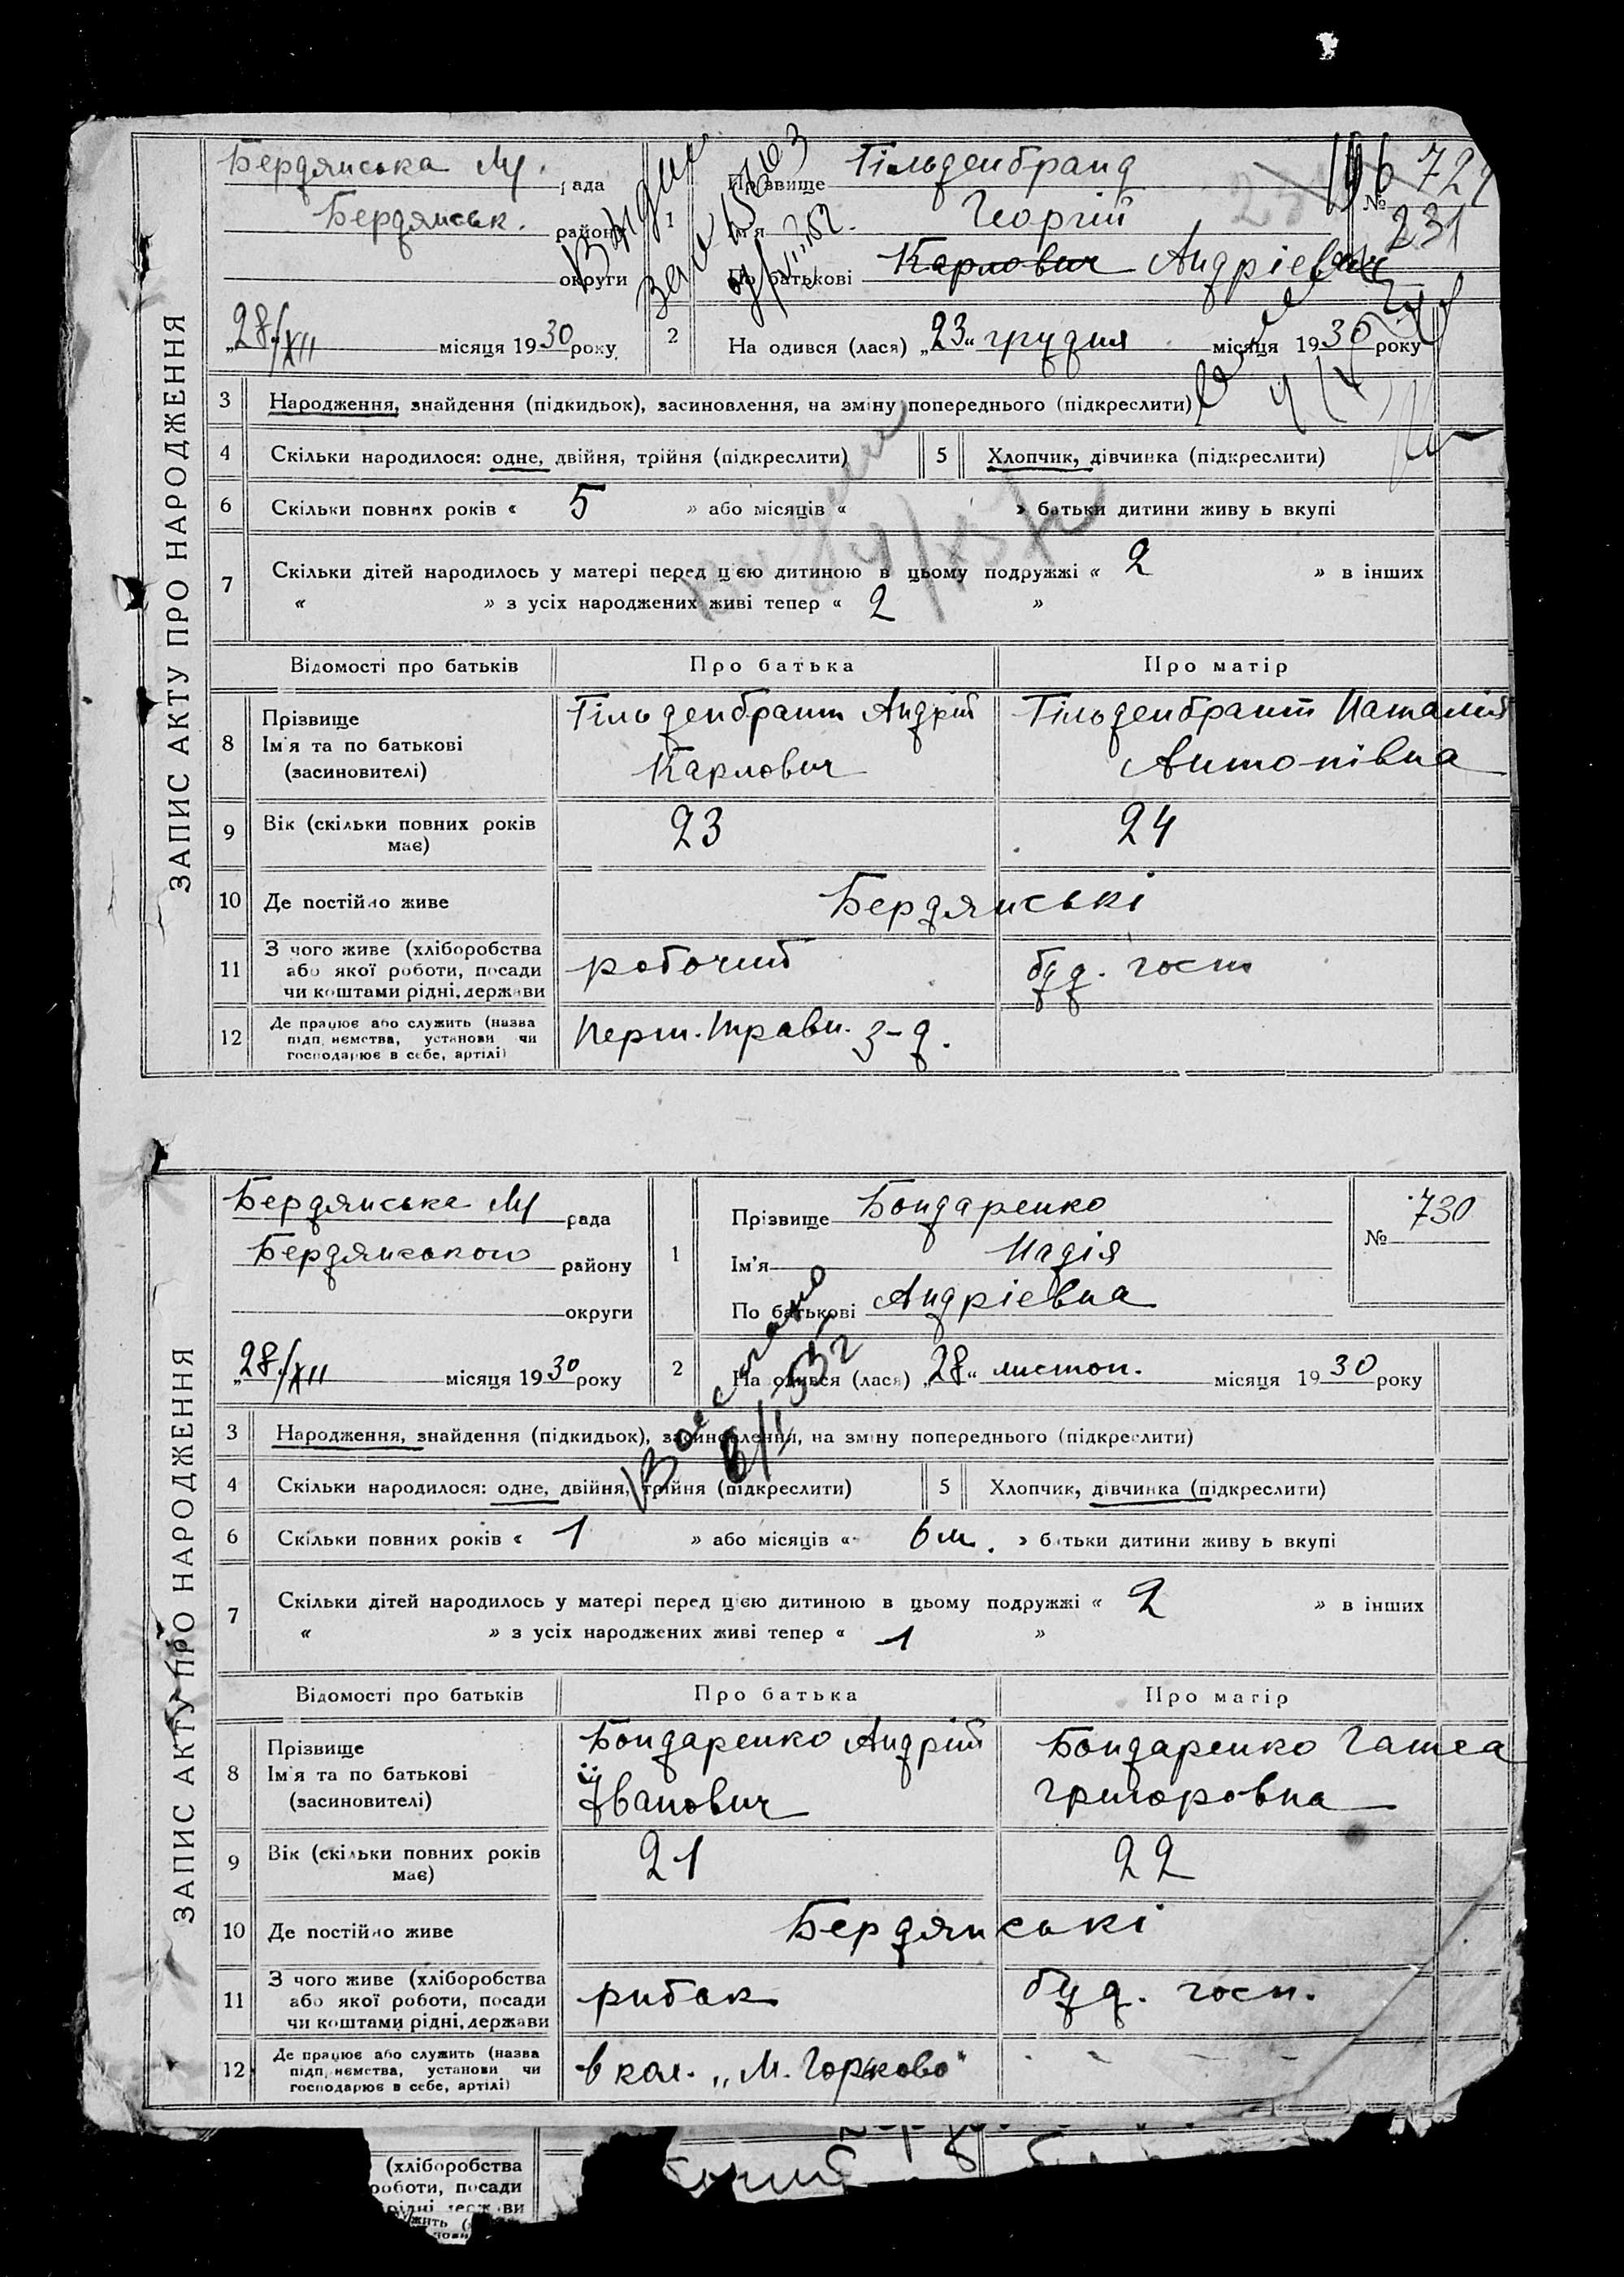 ЗАПИС АКТУ ПРО НАРОДЖЕННЯ
Бердянська М. рада
Бердянськ. району
округи
„28/XII місяця 1930 року
1
Прізвище Гільденбранд
Ім'я Георгій
По батькові Карлович Андрієвич
№ 729
231
2
На одився (лася) „23“ грудня місяця 1930 року
3 Народження, знайдення (підкидьок), засиновлення, на зміну попереднього (підкреслити)
4 Скільки народилося: одне, двійня, трійня (підкреслити)
5 Хлопчик, дівчинка (підкреслити)
6 Скільки повних років « 5 » або місяців « » батьки дитини живу ь вкупі
7 Скільки дітей народилось у матері перед цією дитиною в цьому подружжі « 2 » в інших
« » з усіх народжених живі тепер « 2 »
Відомості про батьків Про батька Про матір
8 Прізвище Ім'я та по батькові (засиновителі)
Гільденбрант Андрій Карлович
Гільденбрант Наталія Антонівна
9 Вік (скільки повних років має) 23 24
10 Де постійно живе Бердянські
11 З чого живе (хліборобства або якої роботи, посади чи коштами рідні, держави
робочий буд. госп
12 Де працює або служить (назва підп иємства, установи чи господарює в себе, артілі)
Перш. Травн. з-д.
ЗАПИС АКТУ ПРО НАРОДЖЕННЯ
Бердянська М рада
Бердянського району
округи
„28/XII місяця 1930 року
1
Прізвище Бондаренко
Ім'я Надія
По батькові Андрієвна
№ 730
2
На одився (лася) „28“ листоп. місяця 1930 року
3 Народження, знайдення (підкидьок), засиновлення, на зміну попереднього (підкреслити)
4 Скільки народилося: одне, двійня, трійня (підкреслити)
5 Хлопчик, дівчинка (підкреслити)
6 Скільки повних років « 1 » або місяців « 6 м. » батьки дитини живу ь вкупі
7 Скільки дітей народилось у матері перед цією дитиною в цьому подружжі « 2 » в інших
« » з усіх народжених живі тепер « 1 »
Відомості про батьків Про батька Про матір
8 Прізвище Ім'я та по батькові (засиновителі)
Бондаренко Андрій Іванович
Бондаренко Григоровна
9 Вік (скільки повних років має) 21 22
10 Де постійно живе Бердянські
11 З чого живе (хліборобства або якої роботи, посади чи коштами рідні, держави
рибак буд. госп.
12 Де працює або служить (назва підп иємства, установи чи господарює в себе, артілі)
в кол. „М. Горьково“
(хліборобства
роботи, посади